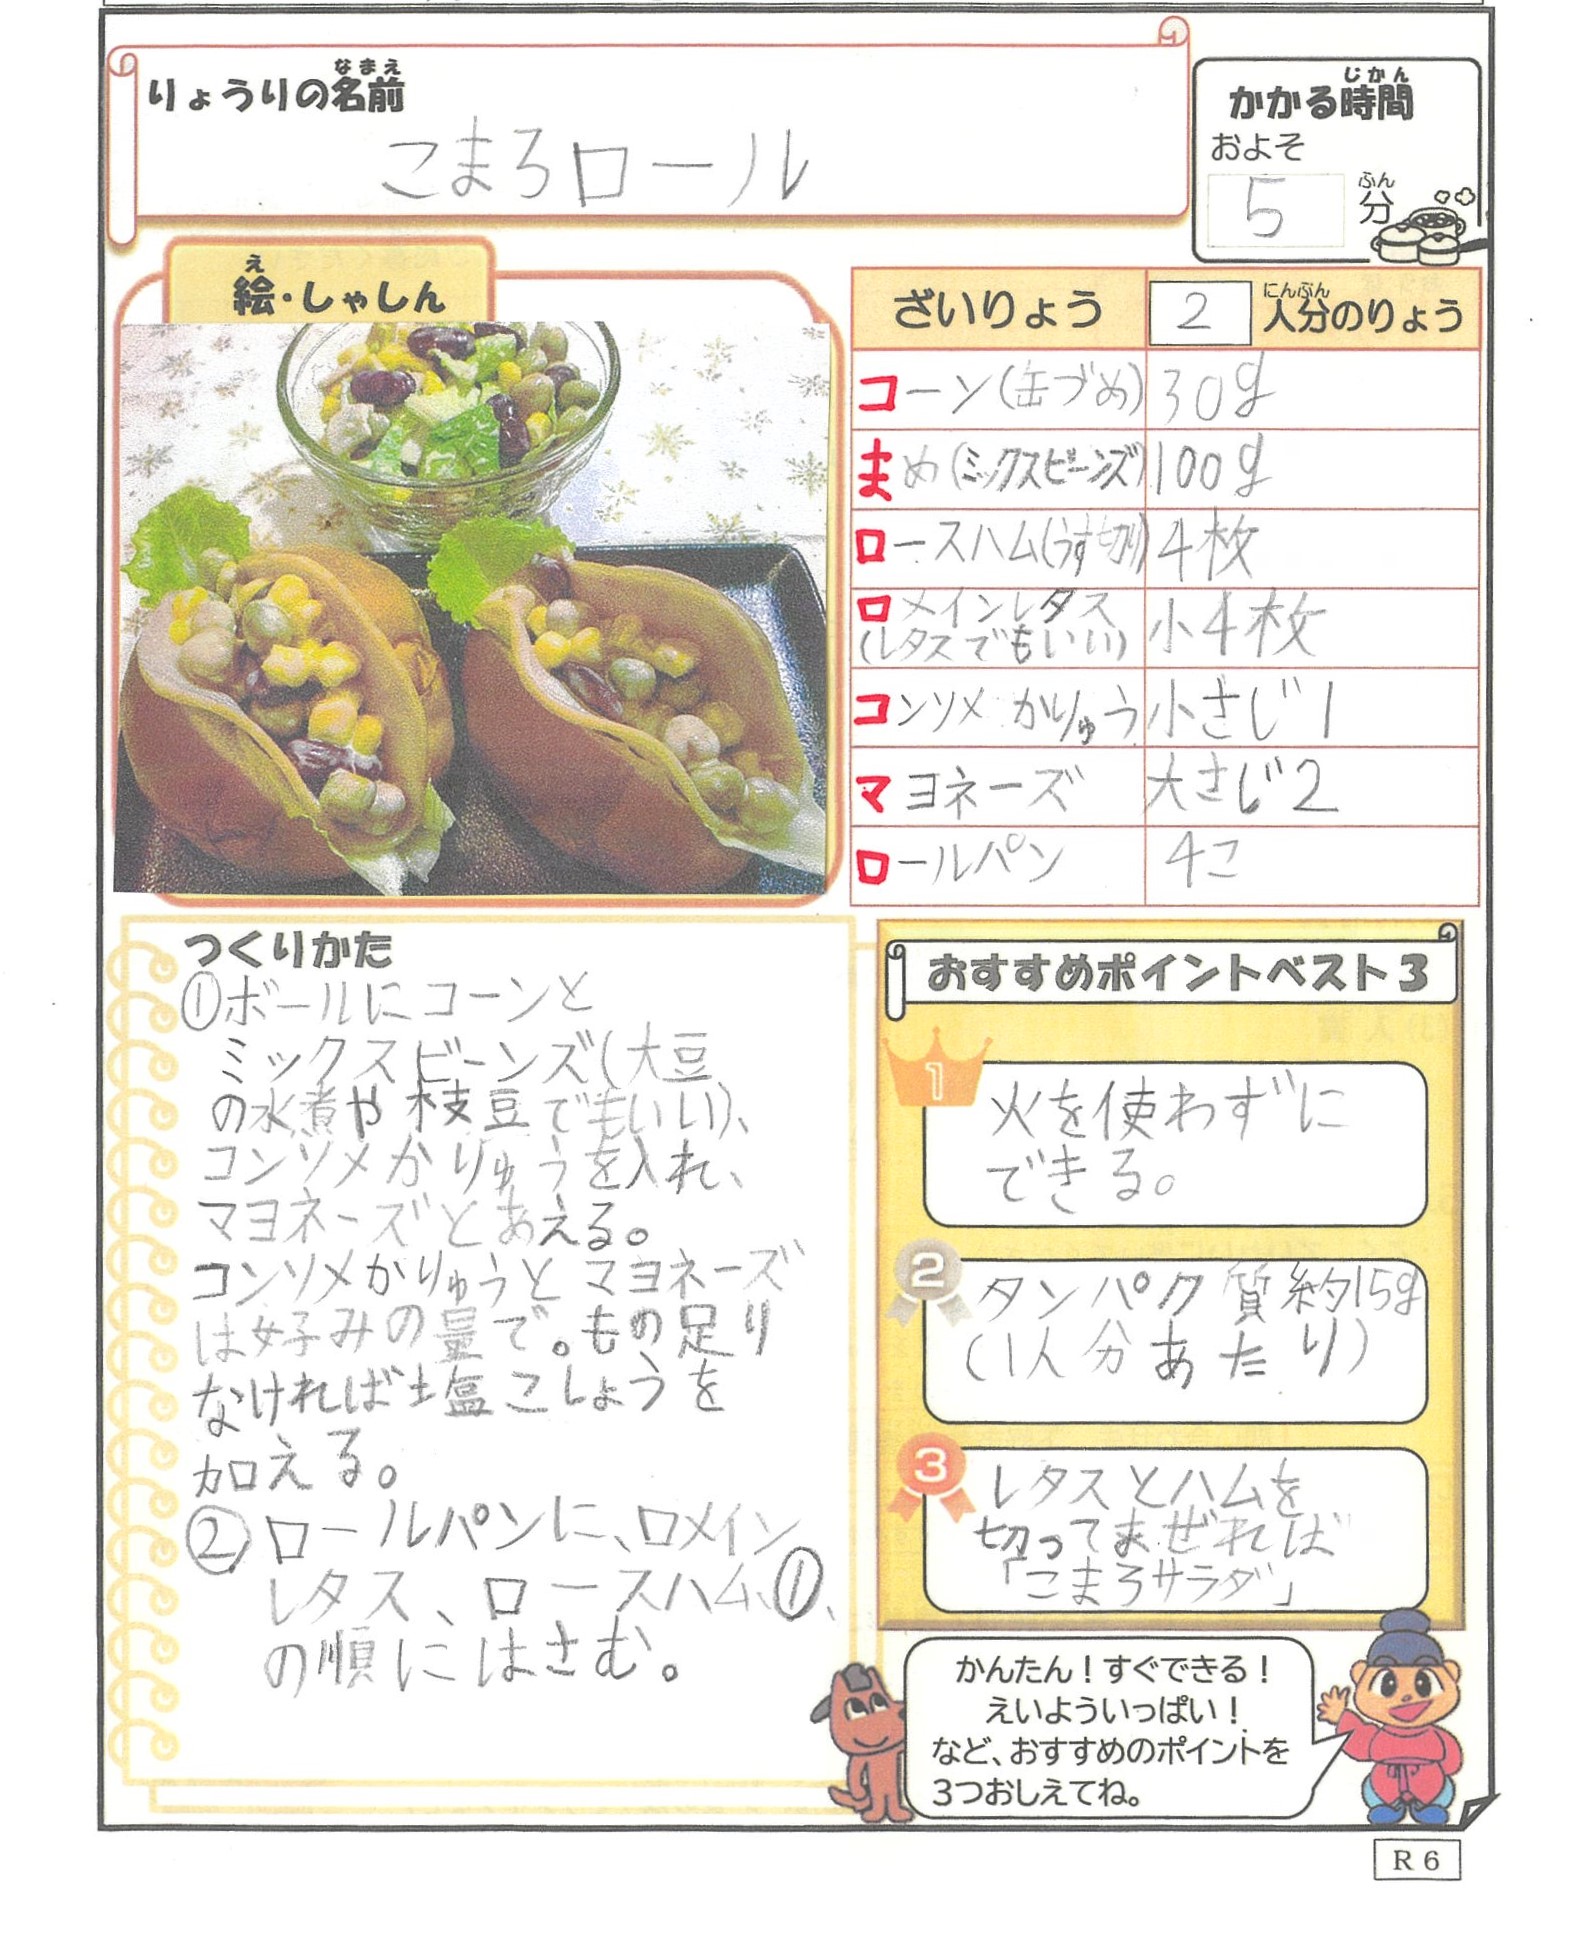 りょうりの名前
なまえ
こまろロール
かかる時間
じかん
およそ
5
分
ふん
絵・しゃしん
え
ざいりょう 2 人分のりょう
にんぶん
コーン(缶づめ) 30g
まめ(ミックスビーンズ) 100g
ロースハム(うす切り) 4枚
ロメインレタス
(レタスでもいい) 小4枚
コンソメ かりゅう 小さじ1
マヨネーズ 大さじ2
ロールパン 4こ
つくりかた
①ボールにコーンと
ミックスビーンズ(大豆
の水煮や枝豆でもいい)、
コンソメかりゅうを入れ、
マヨネーズとあえる。
コンソメかりゅうとマヨネーズ
は好みの量で。もの足り
なければ塩こしょうを
加える。
②ロールパンに、ロメイン
レタス、ロースハム、①、
の順にはさむ。
おすすめポイントベスト3
1
火を使わずに
できる。
2
タンパク質約15g
(1人分あたり)
3
レタスとハムを
切ってまぜれば
「こまろサラダ」
かんたん！すぐできる！
えいよういっぱい！
など、おすすめのポイントを
3つおしえてね。
R6